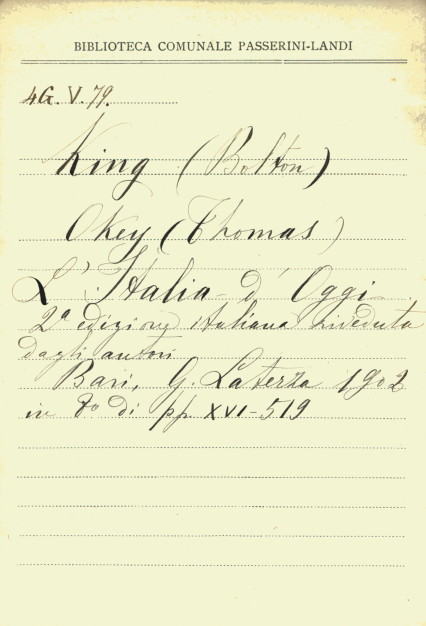 BIBLIOTECA COMUNALE PASSERINI-LANDI
4G. V. 79.
King (Bolton)
Okey (Thomas)
L'Italia d'Oggi
2ª edizione italiana riveduta
dagli autori
Bari, G. Laterza 1902
in 8º di pp. XVI-519